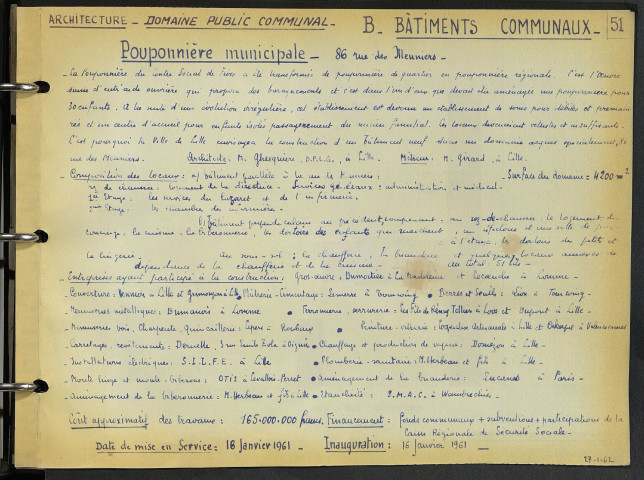 ARCHITECTURE - DOMAINE PUBLIC COMMUNAL - B - BÂTIMENTS COMMUNAUX - 51
Pouponnière municipale - 86 rue des Meuniers -
- La Pouponnière du Centre Social de Fives a été transformée de pouponnière de quartier en pouponnière régionale. C'est l'Oeuvre
d'entr'aide ouvrière qui proposa des baraquements et c'est dans l'un d'eux que devait être aménagée une pouponnière pour
30 enfants. A la suite d'une évolution irrégulière, cet établissement est devenu un établissement de soins pour débiles et prématu-
rés et un centre d'accueil pour enfants isolés passagèrement du milieu familial. Les locaux devenaient vétustes et insuffisants.
C'est pourquoi la Ville de Lille envisagea la construction d'un bâtiment neuf dans un domaine acquis spécialement, 86
rue des Meuniers. Architecte: M. Ghesquière D.P.L.G. à Lille. Métreur: M. Girard à Lille.
- Composition des locaux: a/ bâtiment parallèle à la rue des Meuniers: - Surface du domaine = 4200 m²
rez de chaussée: logement de la directrice. Services généraux: administration et médical.
1er étage: les services du lazaret et de l'infirmerie
2ème étage: les chambres des infirmières.
b/ bâtiment perpendiculaire au précédent comprenant: au rez-de-chaussée le logement du
concierge, la cuisine, la biberonnerie, les dortoirs des enfants qui marchent, un réfectoire et une salle de
à l'étage, les dortoirs des petits et
la lingerie. au sous-sol: la chaufferie. La buanderie et quelques locaux annexes
dépendances de la chaufferie et de la cuisine.
- Entreprises ayant participé à la construction: Gros-oeuvre: Dumortier à La Madeleine et à Lomme -
- Couverture: à Lille et à Lille Plâtrerie - Cimentage: Lemerre à Tourcoing - Berres et Seuils: à Tourcoing -
- Menuiseries métalliques: Dumanois à Lomme • Ferronnerie, serrurerie: Les Fils de Rémy Tellier à Loos et Dupont à Lille -
- Menuiseries bois, Charpente, Quincaillerie: à Roubaix • Peinture - vitrerie: à Lille et à Valenciennes
- Carrelages, revêtements: 3 rue Emile Zola à • Chauffage et production de vapeur: à Lille -
- Installations électriques: S.I.L.F.E. à Lille • Plomberie - sanitaire: M. Herbeau et fils à Lille -
- Monte linge et monte-biberons: OTIS à Levallois-Perret • Aménagement de la buanderie: à Paris -
- Aménagement de la biberonnerie: M. Herbeau et fils à Lille • Etanchéité: S.M.A.C. à Wambrechies -
- Coût approximatif des travaux: 165.000.000 francs. Financement: Fonds communaux + subventions + participations de la
Caisse Régionale de Sécurité Sociale -
Date de mise en Service: 18 Janvier 1961 - Inauguration: 16 Janvier 1961 -
27-1-62